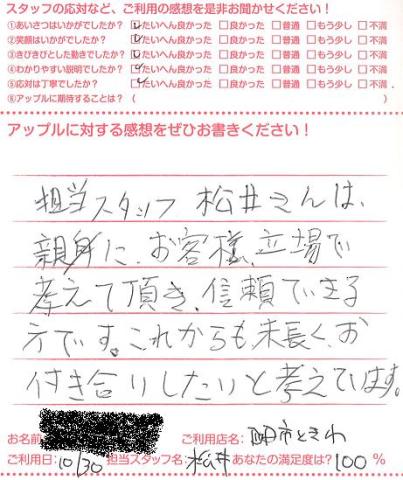 スタッフの応対など、ご利用の感想を是非お聞かせください！
①あいさつはいかがでしたか？ ☑たいへん良かった □良かった □普通 □もう少し □不満
②笑顔はいかがでしたか？ ☑たいへん良かった □良かった □普通 □もう少し □不満
③きびきびとした動きでしたか？ ☑たいへん良かった □良かった □普通 □もう少し □不満
④わかりやすい説明でしたか？ ☑たいへん良かった □良かった □普通 □もう少し □不満
⑤応対は丁寧でしたか？ ☑たいへん良かった □良かった □普通 □もう少し □不満
⑥アップルに期待することは？（ ）
アップルに対する感想をぜひお書きください！
担当スタッフ 松井さんは、
親身に、お客様、立場で
考えて頂き、信頼できる
方です。これからも末長く、お
付き合りしたいと考えています。
お名前 ご利用店名：四日市ときわ
ご利用日：10/30 担当スタッフ名：松井 あなたの満足度は？100％